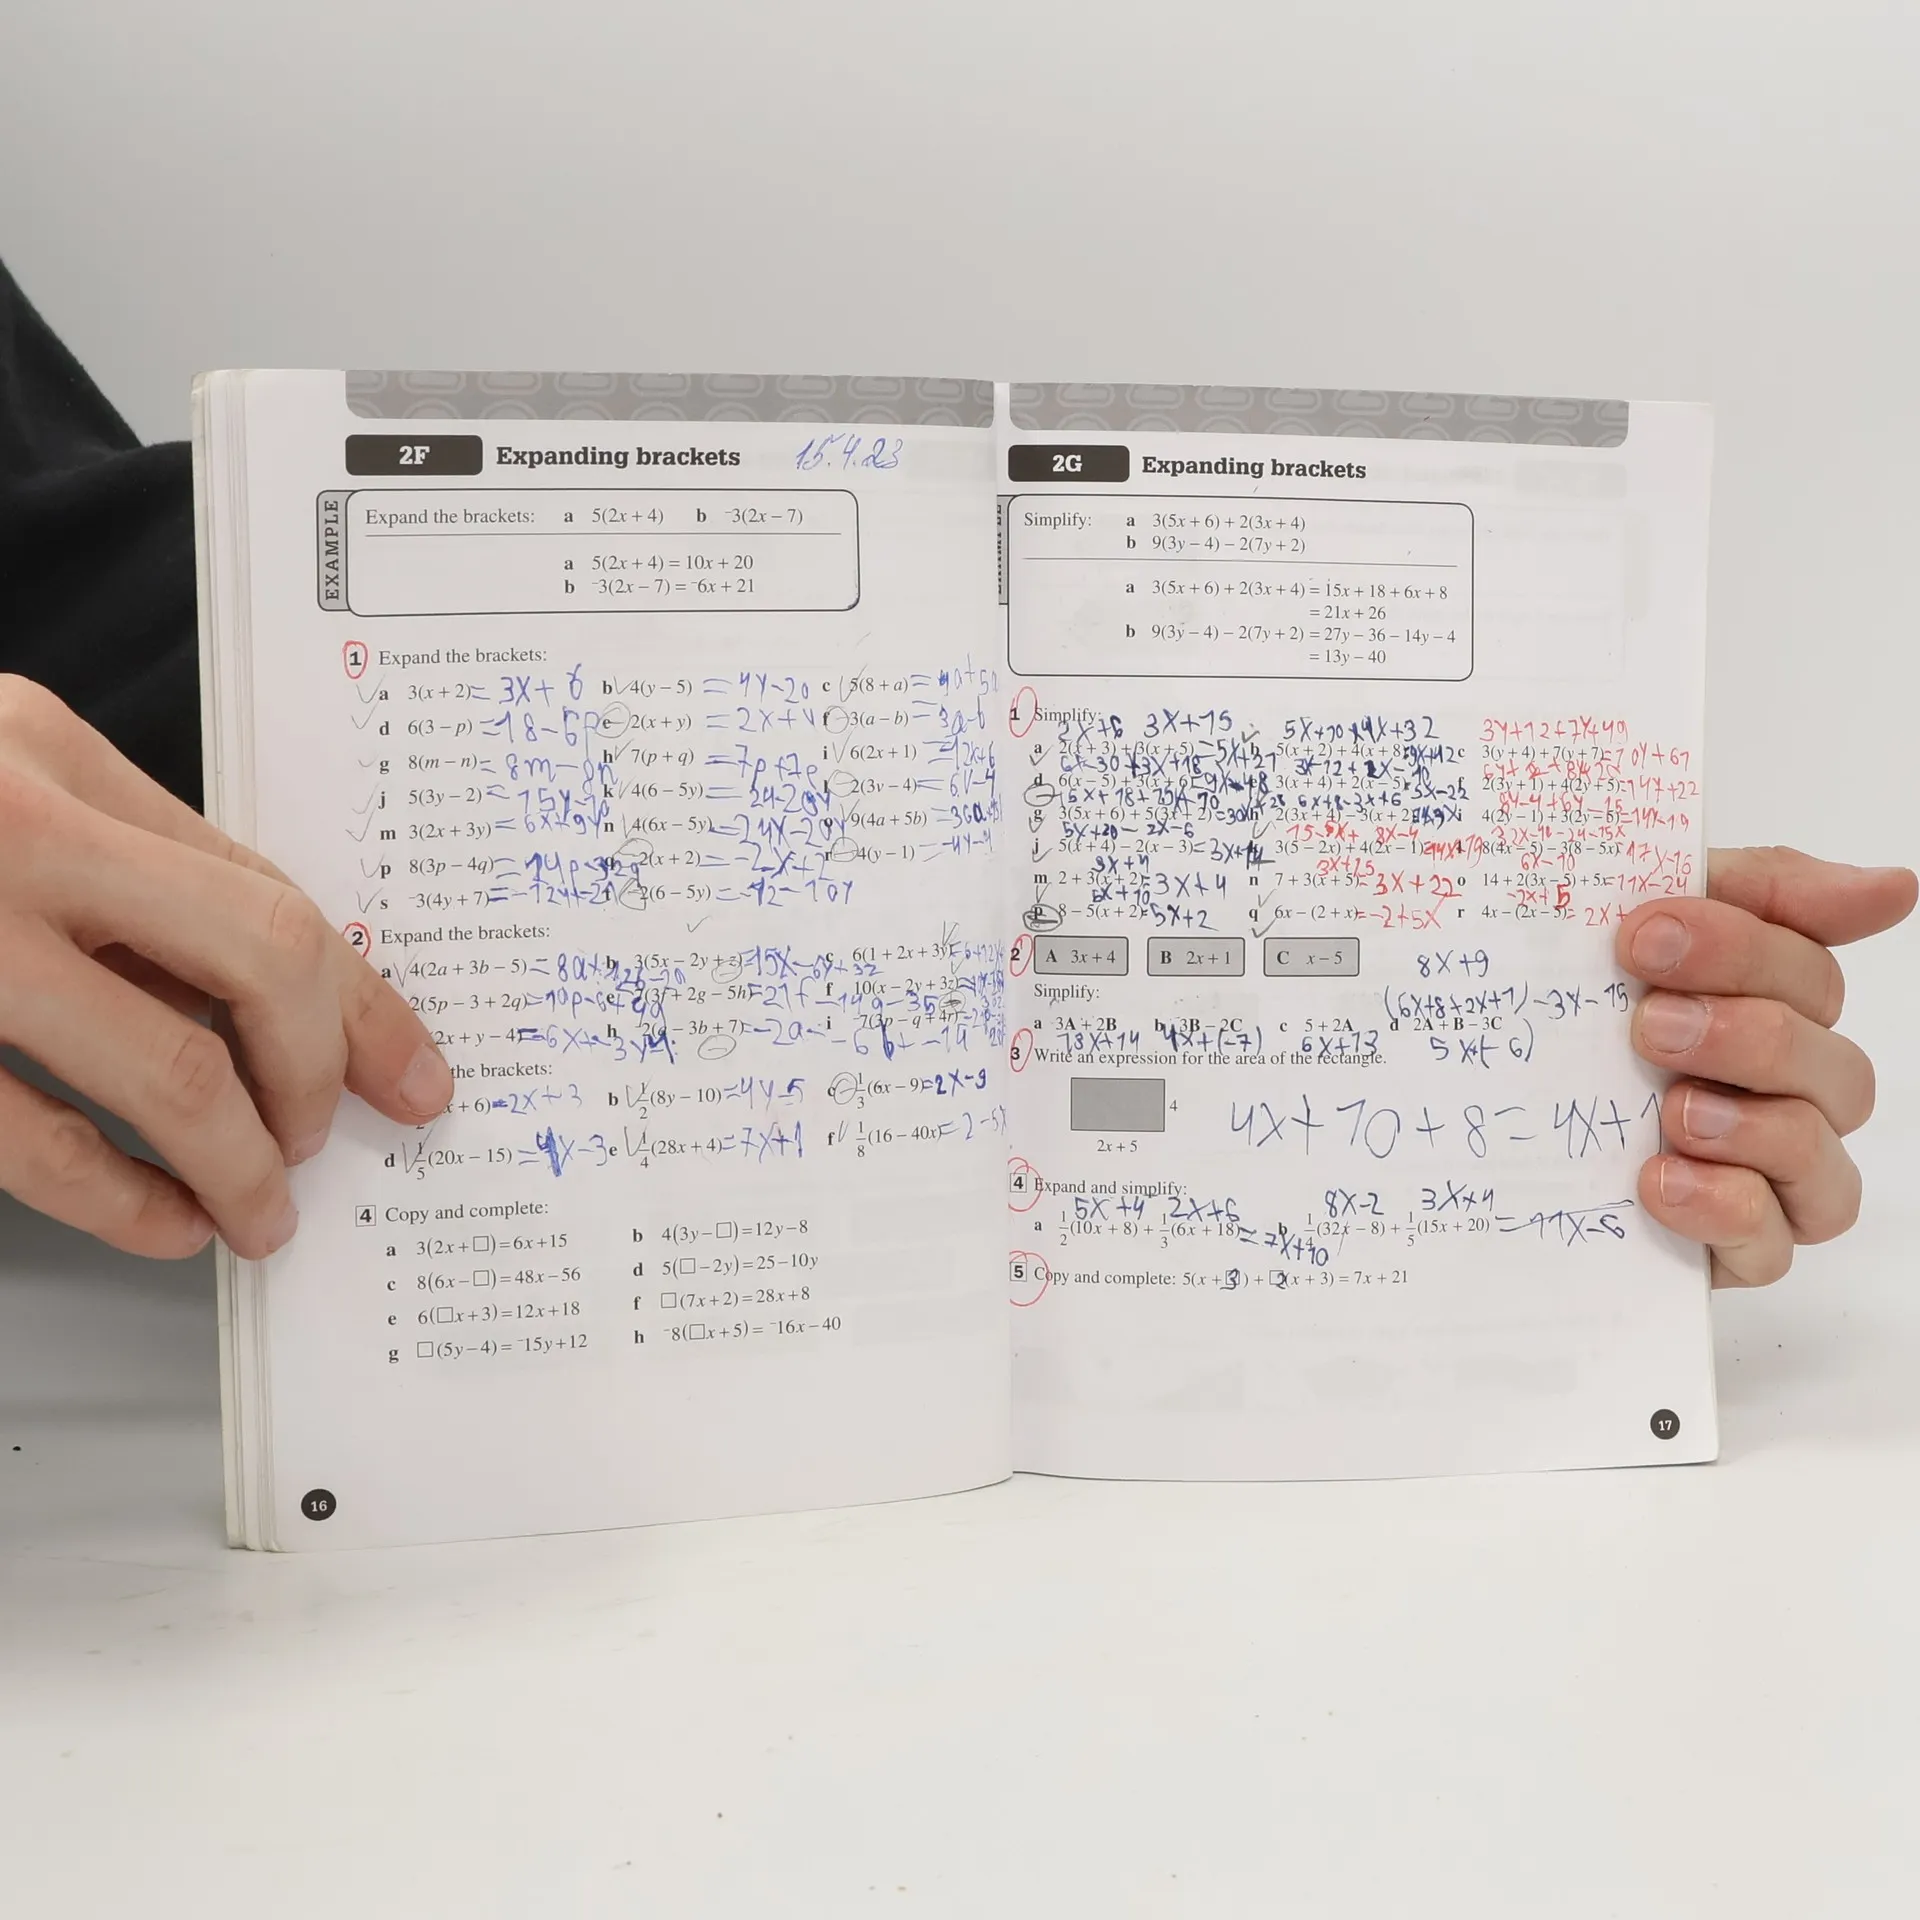 2F Expanding brackets 15.4.23
EXAMPLE
Expand the brackets: a 5(2x + 4) b ⁻3(2x − 7)
a 5(2x + 4) = 10x + 20
b ⁻3(2x − 7) = ⁻6x + 21
1 Expand the brackets:
a 3(x + 2) = 3x + 6 b 4(y − 5) = 4y − 20 c 5(8 + a)
d 6(3 − p) = 18 − 6p e 2(x + y) = 2x + y f 3(a − b) = 3a − b
g 8(m − n) = 8m − 8n h 7(p + q) = 7p + 7p i 6(2x + 1) = 12x + 6
j 5(3y − 2) = 15y − 10 k 4(6 − 5y) = 24 − 20y 2(3v − 4) = 6v − 4
m 3(2x + 3y) = 6x + 9y n 4(6x − 5y) = 24x − 20y 9(4a + 5b)
p 8(3p − 4q) q ⁻2(x + 2) = −2x + 2 r ⁻4(y − 1) = −4y − 4
s ⁻3(4y + 7) = −12y + −21 2(6 − 5y) = −12 − 10y
2 Expand the brackets:
a 4(2a + 3b − 5) b 3(5x − 2y + z) c 6(1 + 2x + 3y)
2(5p − 3 + 2q) e 7(3f + 2g − 5h) f 10(x − 2y + 3z)
2x + y − 4 h − 3b + 7) i ⁻7(3p − q + 4r)
the brackets:
x + 6) = 2x + 3 b ½(8y − 10) = 4y − 5 c ⅓(6x − 9) = 2x − 9
d ⅕(20x − 15) = 4x − 3 e ¼(28x + 4) = 7x + 1 f ⅛(16 − 40x) = 2 − 5x
4 Copy and complete:
a 3(2x + □) = 6x + 15 b 4(3y − □) = 12y − 8
c 8(6x − □) = 48x − 56 d 5(□ − 2y) = 25 − 10y
e 6(□x + 3) = 12x + 18 f □(7x + 2) = 28x + 8
g □(5y − 4) = ⁻15y + 12 h ⁻8(□x + 5) = ⁻16x − 40
16
2G Expanding brackets
Simplify: a 3(5x + 6) + 2(3x + 4)
b 9(3y − 4) − 2(7y + 2)
a 3(5x + 6) + 2(3x + 4) = 15x + 18 + 6x + 8
= 21x + 26
b 9(3y − 4) − 2(7y + 2) = 27y − 36 − 14y − 4
= 13y − 40
1 Simplify:
3x + 15 5x + 10 + 4x + 32 3y + 12 + 7y + 49
a 2(x + 3) + 3(x + 5) b 5(x + 2) + 4(x + 8) c 3(y + 4) + 7(y + 7) = 10y + 67
d 6(x − 5) + 3(x + 6) 3(x + 4) + 2(x − 5) f 2(3y + 1) + 4(2y + 5) = 14y + 22
g 3(5x + 6) + 5(3x + 2) h 2(3x + 4) − 3(x + 2) i 4(2y − 1) + 3(2y − 5) = 14y − 19
5x + 20 − 2x − 6
j 5(x + 4) − 2(x − 3) = 3x + 14 3(5 − 2x) + 4(2x − 1) 8(4x − 5) − 3(8 − 5x) = 17x − 16
3x + 4 3x + 15 6x − 10
m 2 + 3(x + 2) = 3x + 4 n 7 + 3(x + 5) = 3x + 22 o 14 + 2(3x − 5) + 5x = 11x − 24
5x + 10 −2x + 5
p 8 − 5(x + 2) = 5x + 2 q 6x − (2 + x) = −2 + 5x r 4x − (2x − 5) = 2x +
2 A 3x + 4 B 2x + 1 C x − 5 8x + 9
Simplify: (6x + 8 + 2x + 1) − 3x − 15
a 3A + 2B b 3B − 2C c 5 + 2A d 2A + B − 3C
13x + 14 4x + (−7) 6x + 13 5x + (−6)
3 Write an expression for the area of the rectangle.
4 4x + 10 + 8 = 4x + 1
2x + 5
4 Expand and simplify:
5x + 4 2x + 6 8x − 2 3x + 4
a ½(10x + 8) + ⅓(6x + 18) = 7x + 10 b ¼(32x − 8) + ⅕(15x + 20) = 11x − 6
5 Copy and complete: 5(x + 3) + 2(x + 3) = 7x + 21
17